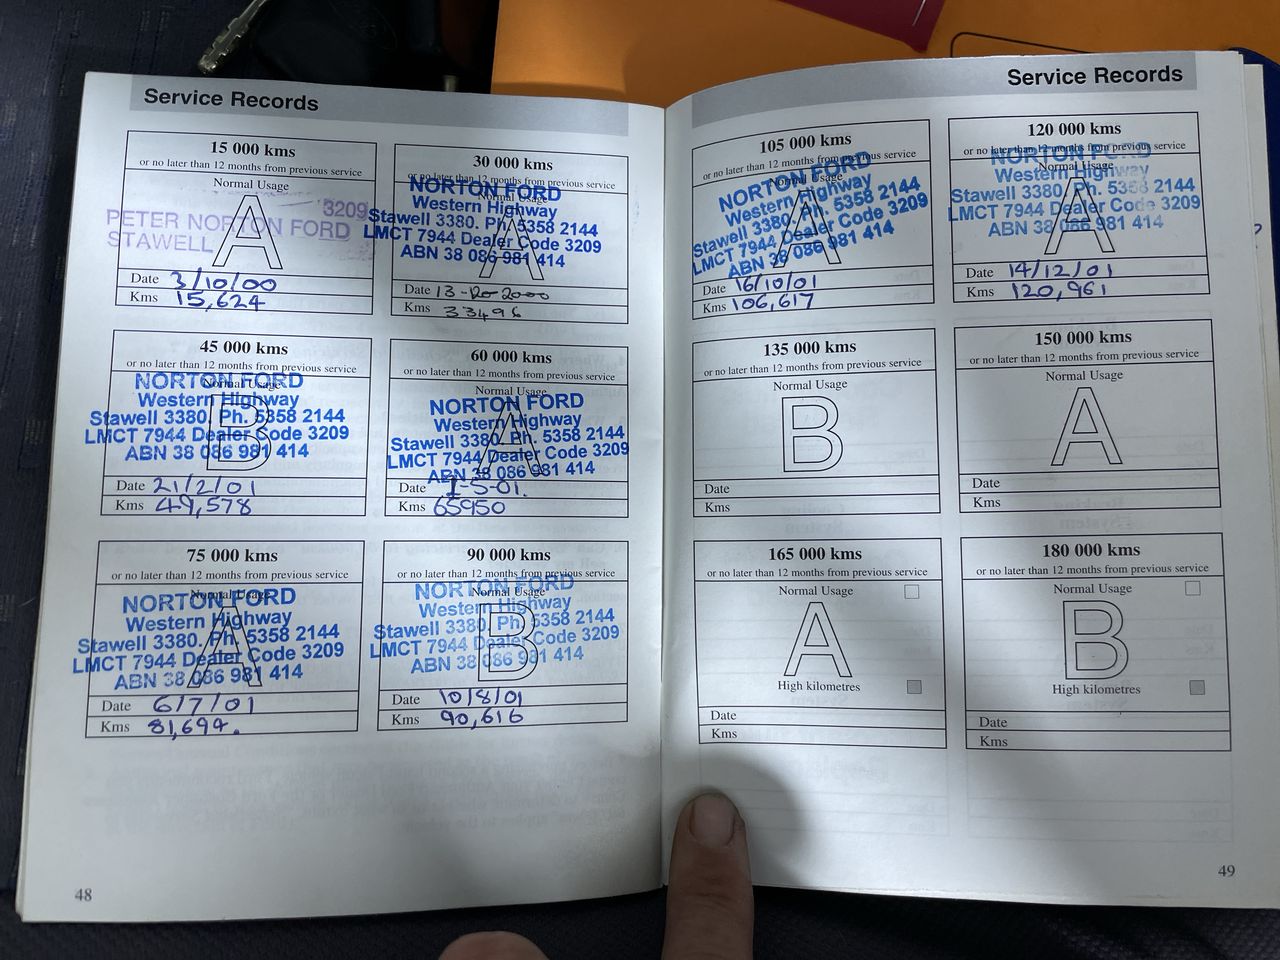 Service Records
15 000 kms
or no later than 12 months from previous service
Normal Usage
A
3209
PETER NORTON FORD
STAWELL
Date 3/10/00
Kms 15,624
30 000 kms
or no later than 12 months from previous service
Normal Usage
A
NORTON FORD
Western Highway
Stawell 3380. Ph. 5358 2144
LMCT 7944 Dealer Code 3209
ABN 38 086 981 414
Date 13-12-2000
Kms 33496
45 000 kms
or no later than 12 months from previous service
Normal Usage
B
NORTON FORD
Western Highway
Stawell 3380. Ph. 5358 2144
LMCT 7944 Dealer Code 3209
ABN 38 086 981 414
Date 21/2/01
Kms 49,578
60 000 kms
or no later than 12 months from previous service
Normal Usage
A
NORTON FORD
Western Highway
Stawell 3380. Ph. 5358 2144
LMCT 7944 Dealer Code 3209
ABN 38 086 981 414
Date 1-5-01.
Kms 65950
75 000 kms
or no later than 12 months from previous service
Normal Usage
A
NORTON FORD
Western Highway
Stawell 3380. Ph. 5358 2144
LMCT 7944 Dealer Code 3209
ABN 38 086 981 414
Date 6/7/01
Kms 81,694.
90 000 kms
or no later than 12 months from previous service
Normal Usage
B
NORTON FORD
Western Highway
Stawell 3380. Ph. 5358 2144
LMCT 7944 Dealer Code 3209
ABN 38 086 981 414
Date 10/8/01
Kms 90,616
48
Service Records
105 000 kms
or no later than 12 months from previous service
Normal Usage
A
NORTON FORD
Western Highway
Stawell 3380. Ph. 5358 2144
LMCT 7944 Dealer Code 3209
ABN 38 086 981 414
Date 16/10/01
Kms 106,617
120 000 kms
or no later than 12 months from previous service
Normal Usage
A
NORTON FORD
Western Highway
Stawell 3380. Ph. 5358 2144
LMCT 7944 Dealer Code 3209
ABN 38 086 981 414
Date 14/12/01
Kms 120,961
135 000 kms
or no later than 12 months from previous service
Normal Usage
B
Date
Kms
150 000 kms
or no later than 12 months from previous service
Normal Usage
A
Date
Kms
165 000 kms
or no later than 12 months from previous service
Normal Usage
A
High kilometres
Date
Kms
180 000 kms
or no later than 12 months from previous service
Normal Usage
B
High kilometres
Date
Kms
49